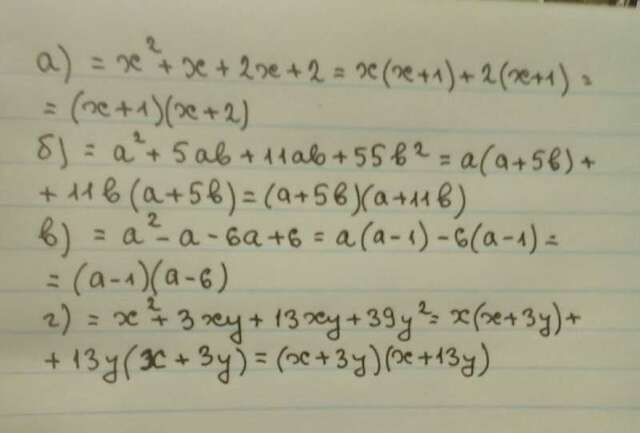 а) = x² + x + 2x + 2 = x(x+1) + 2(x+1) =
= (x+1)(x+2)
б) = a² + 5ab + 11ab + 55b² = a(a+5b) +
+ 11b(a+5b) = (a+5b)(a+11b)
в) = a² - a - 6a + 6 = a(a-1) - 6(a-1) =
= (a-1)(a-6)
г) = x² + 3xy + 13xy + 39y² = x(x+3y) +
+ 13y(x+3y) = (x+3y)(x+13y)